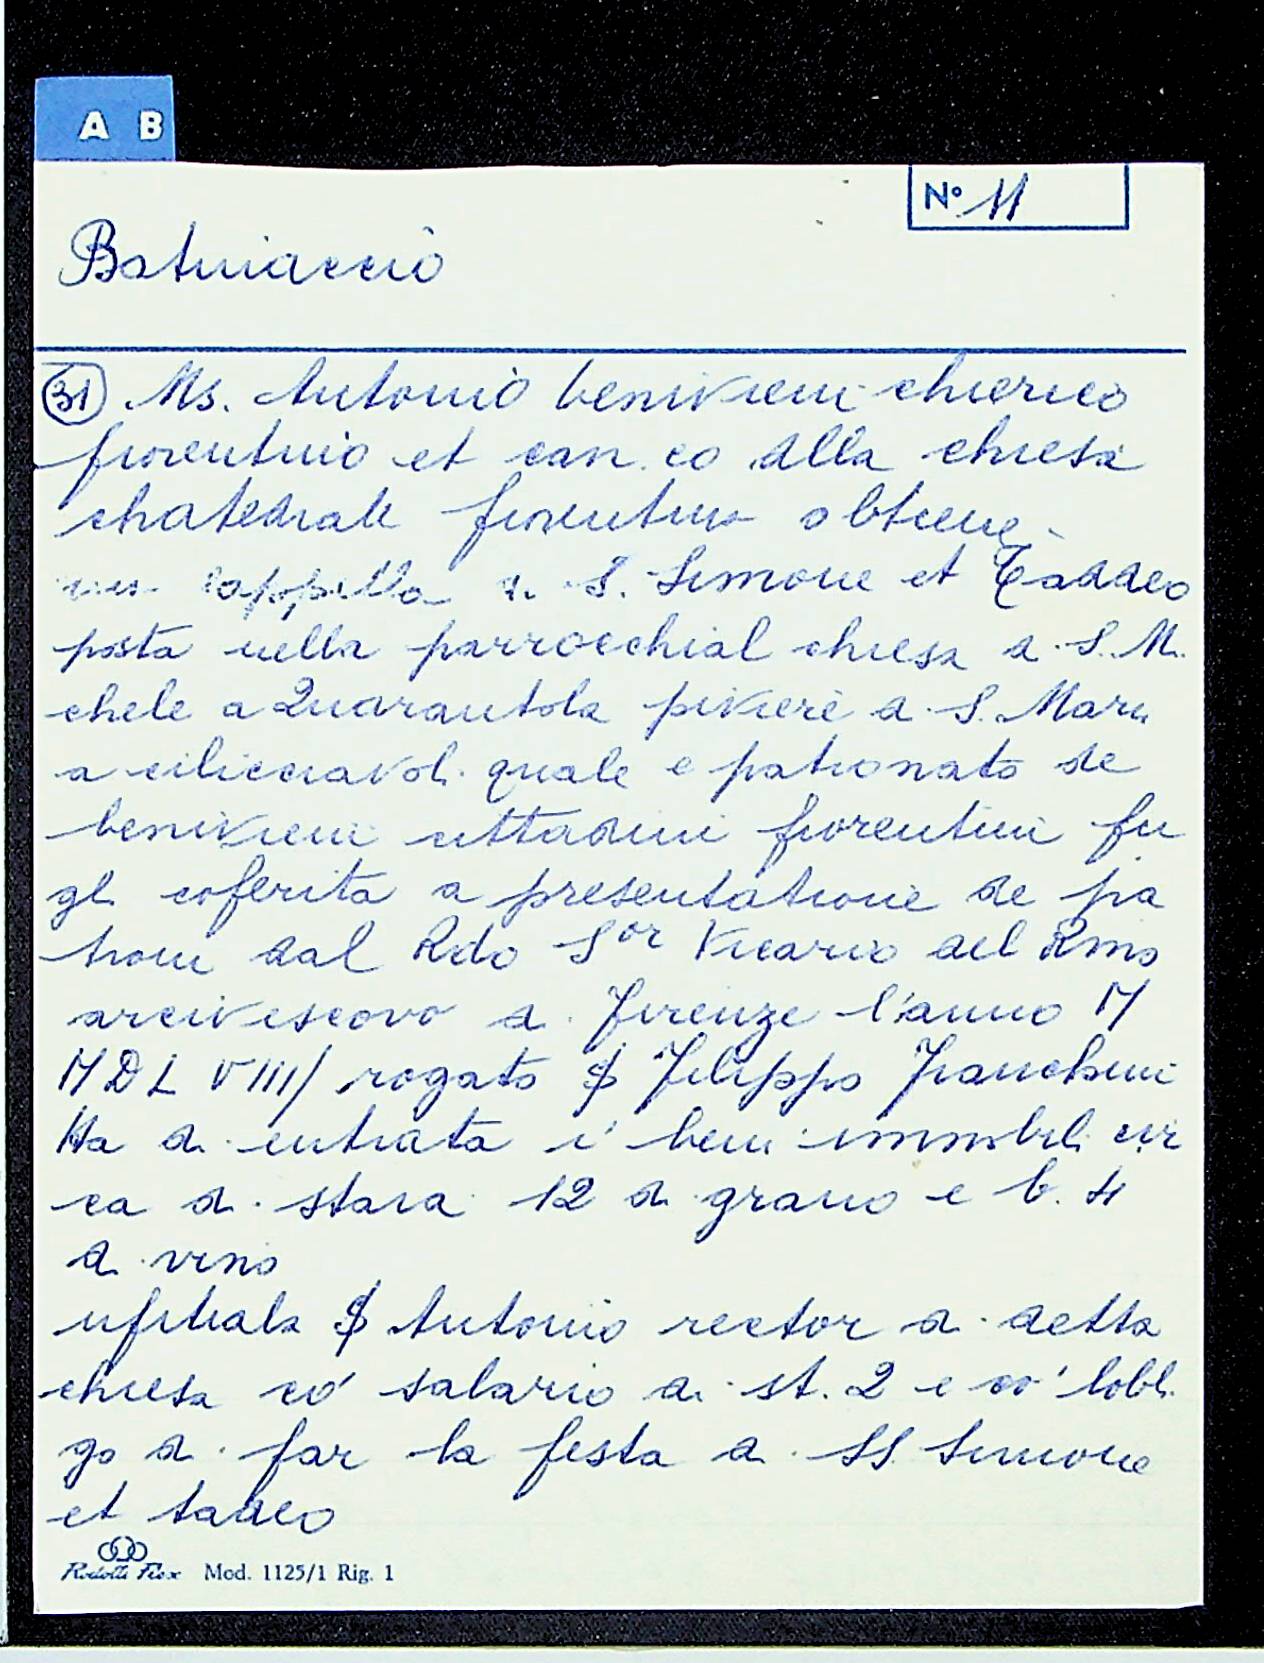 A B
Nº 11
Batuiaccio
31 Ms. Antonio benivieni chierico
fiorentino et can.co alla chiesa
chatedrale fiorentina obtiene
una cappella di S. Simone et Taddeo
posta nella parrocchial chiesa di S. Mi
chele a Quarantola piviere di S. Maria
a cilicciavoli quale e patronato de
benivieni cittadini fiorentini fu
gli coferita a presentatione de pa
troni dal Rdo Sor Vicario del Rmo
arcivescovo di Firenze l'anno M
MDLVIII/ rogato Filippo Franchini
Ha di entrata i' beni immobili cir
ca di staia 12 di grano e b. 4
di vino
ufitiala Antonio rector di detta
chiesa co' salario di st. 2 e co' lobli
go di far la festa di SS. Simone
et tadeo
Rodolli Flex Mod. 1125/1 Rig. 1